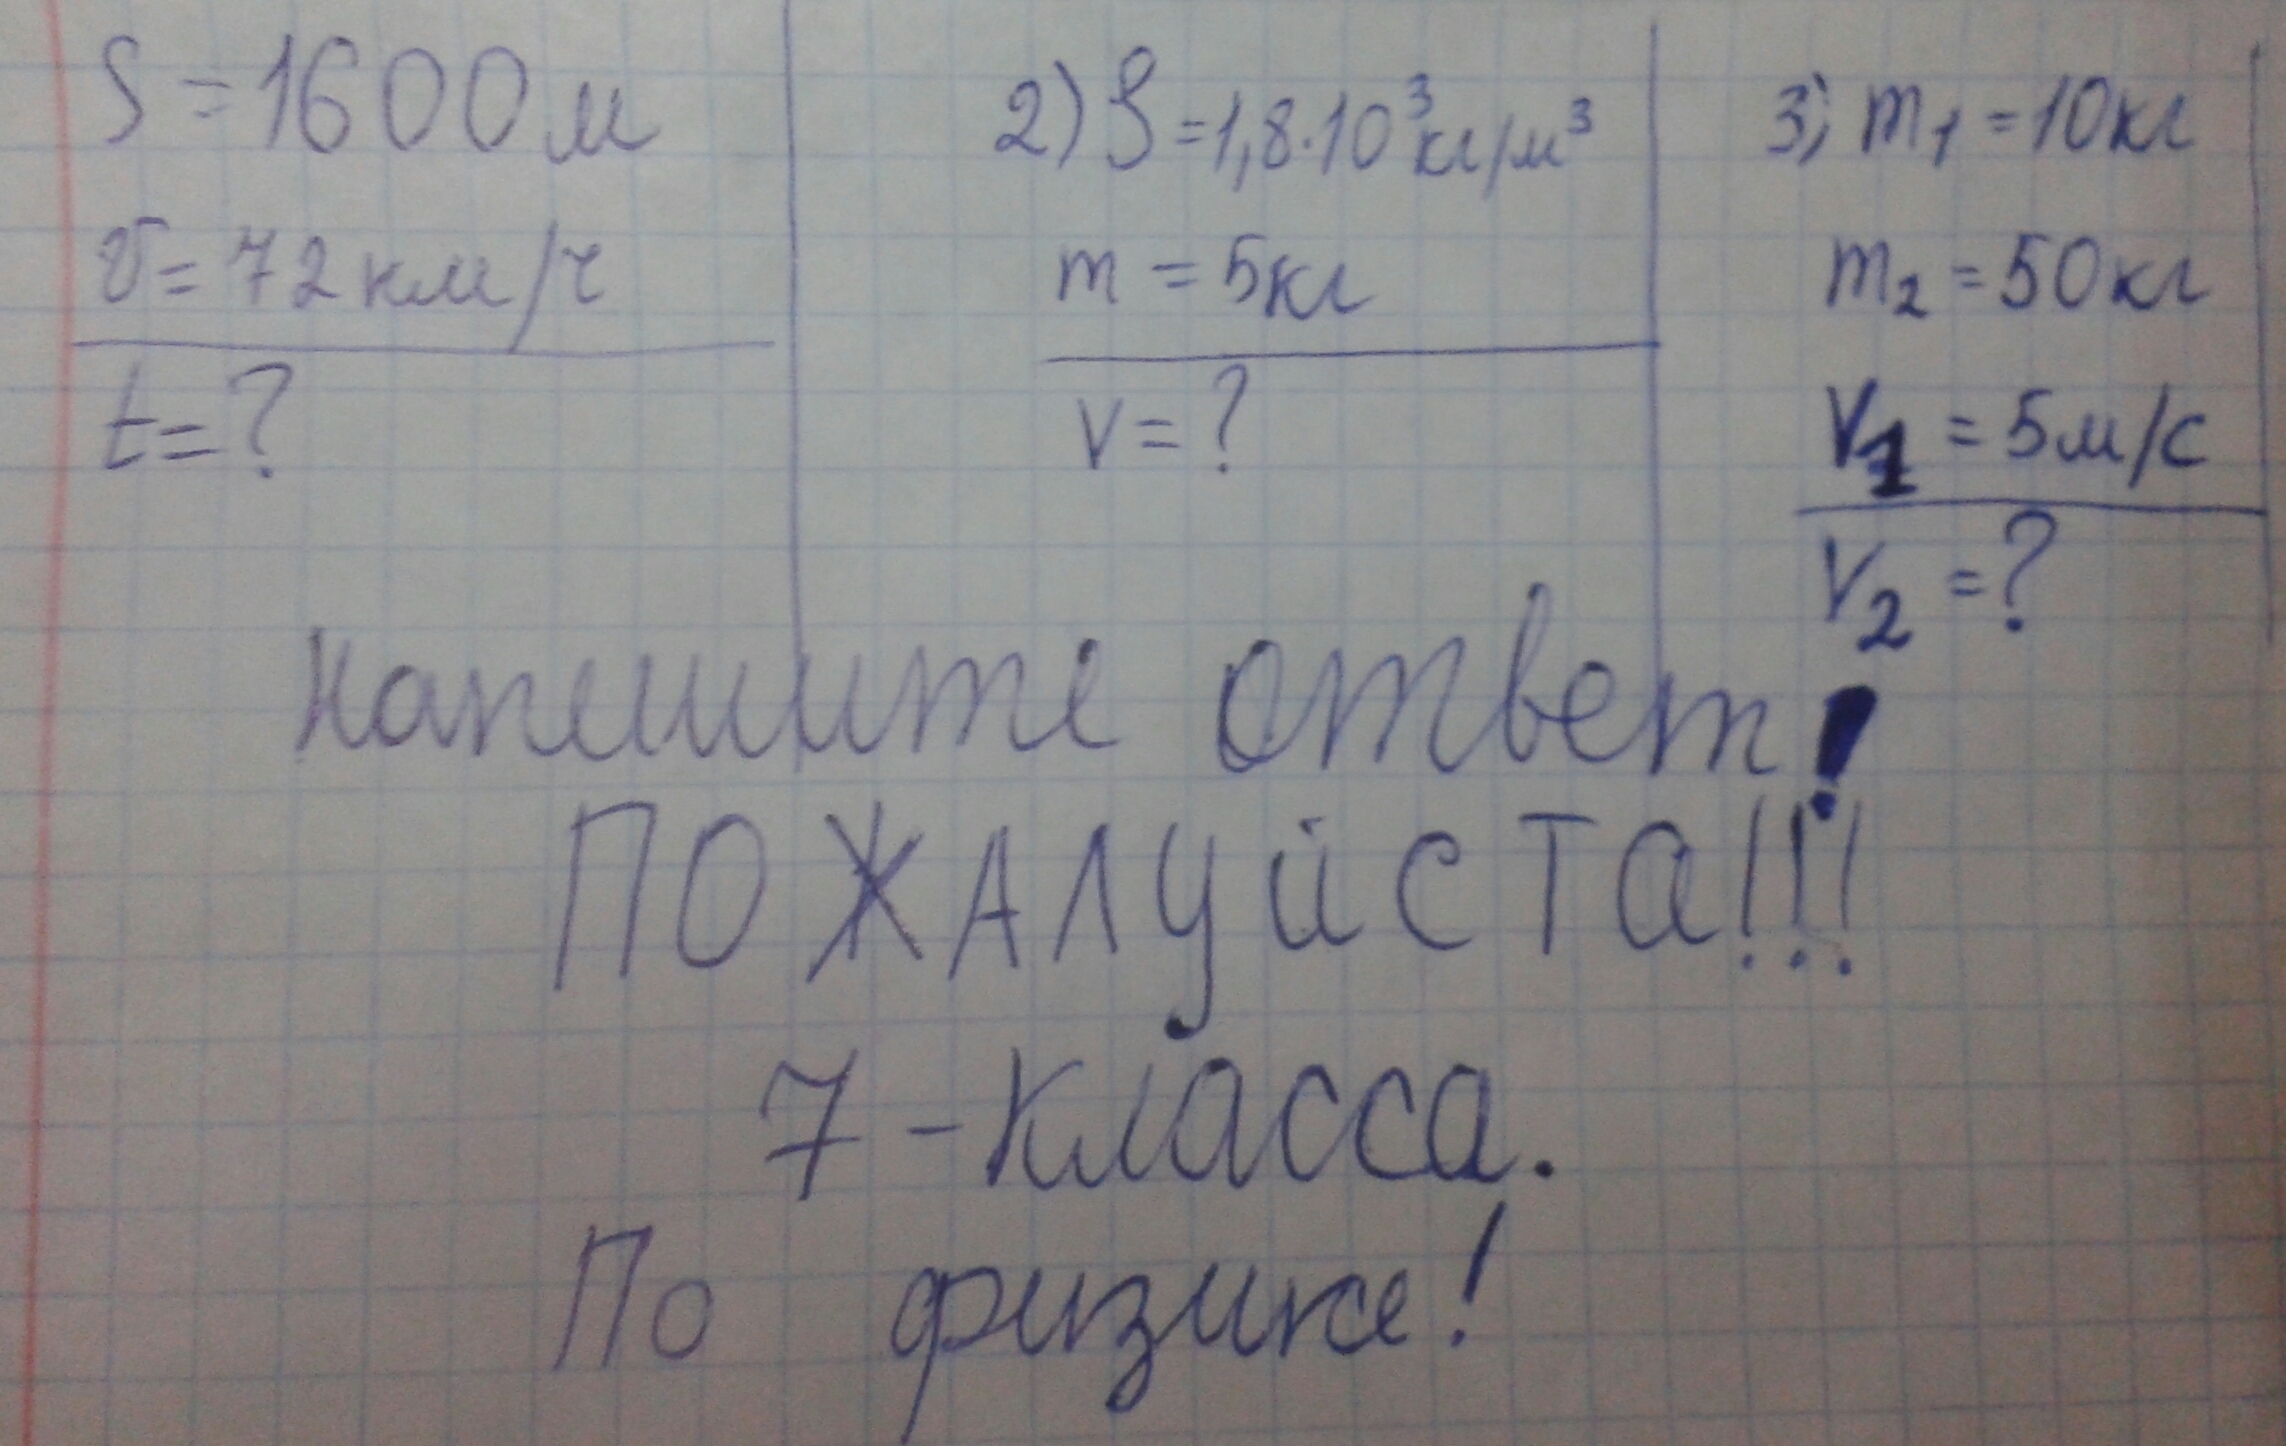 S = 1600 м
v = 72 км/ч
t = ?
2) ρ = 1,8·10³ кг/м³
m = 5кг
v = ?
3) m₁ = 10кг
m₂ = 50кг
v₁ = 5м/с
v₂ = ?
Напишите ответ!
ПОЖАЛУЙСТА!!!
7-класса.
По физике!